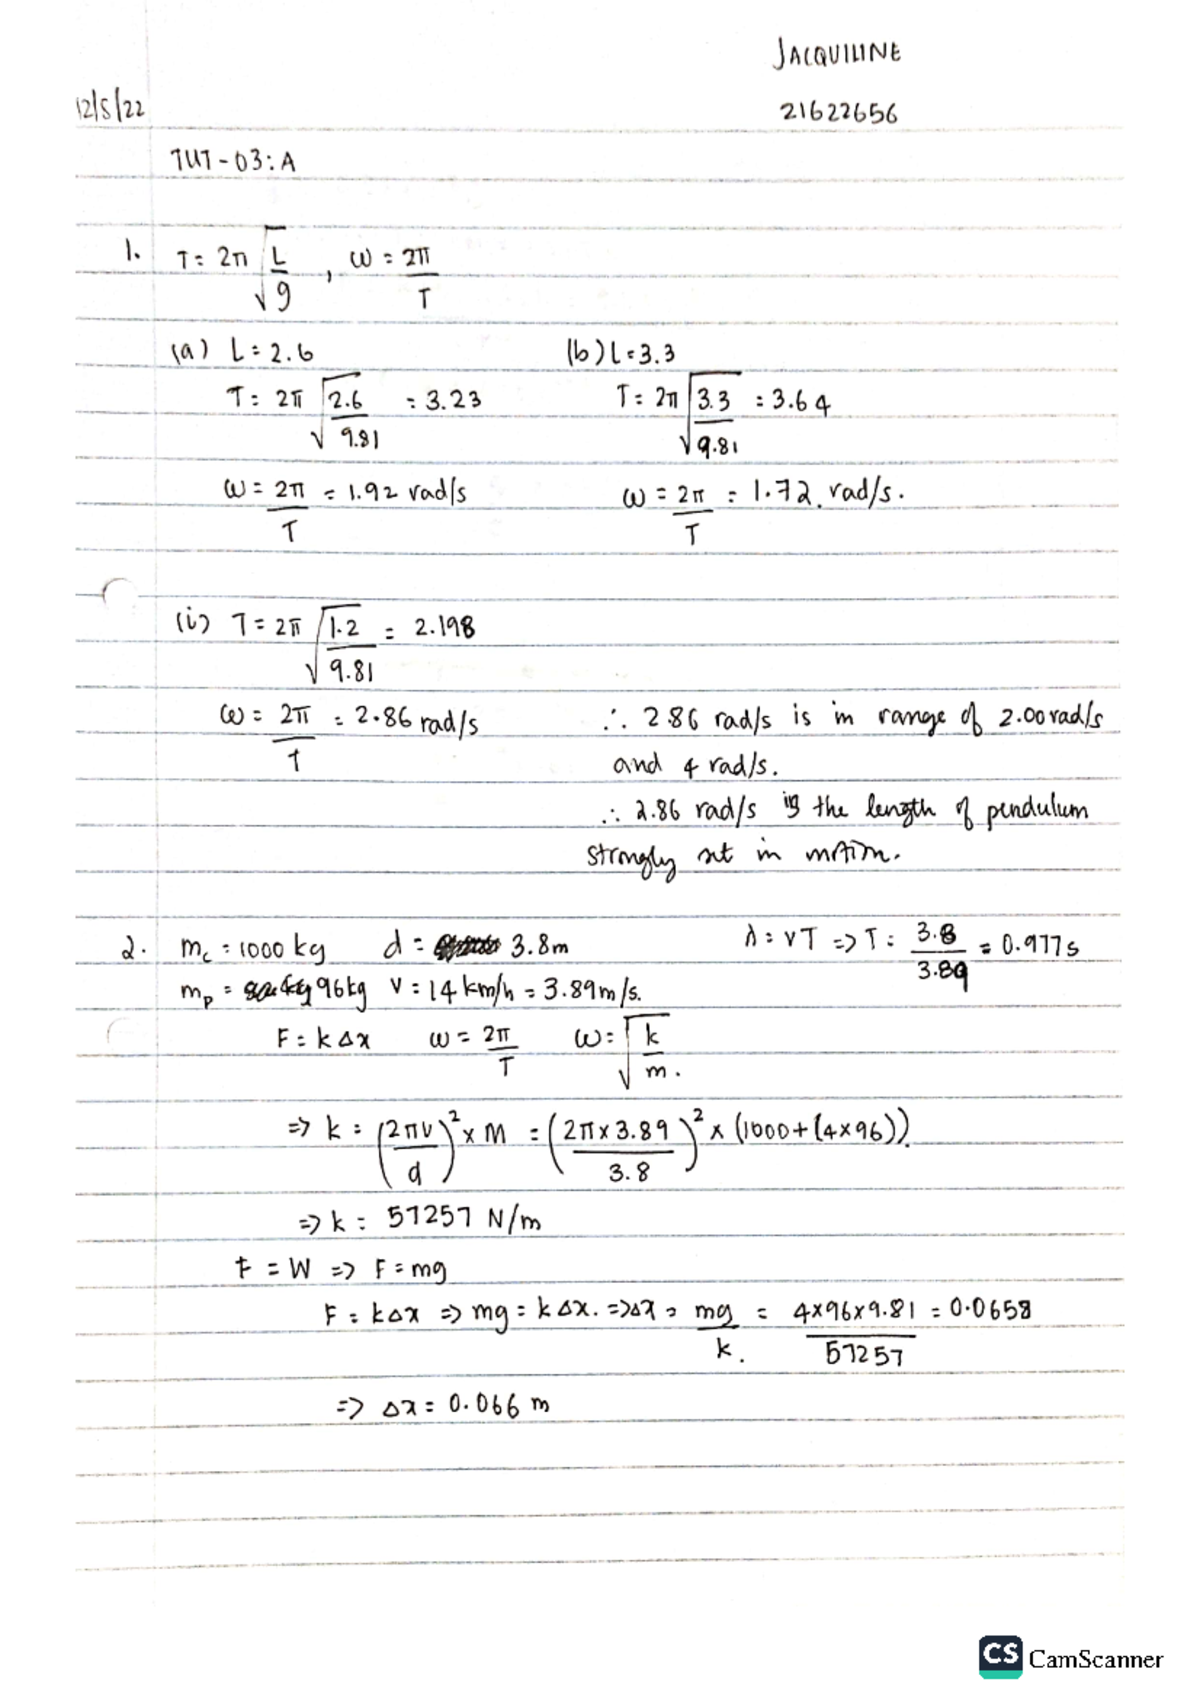 JACQUILINE
12/5/22
21622656
TUT-03:A
1. T = 2π √(L/g), ω = 2π/T
(a) L = 2.6
(b) L = 3.3
T = 2π √(2.6/9.81) = 3.23
T = 2π √(3.3/9.81) = 3.64
ω = 2π/T = 1.92 rad/s
ω = 2π/T = 1.72 rad/s.
(i) T = 2π √(1.2/9.81) = 2.198
ω = 2π/T = 2.86 rad/s
∴ 2.86 rad/s is in range of 2.00 rad/s
and 4 rad/s.
∴ 2.86 rad/s is the length of pendulum
strongly set in motion.
2. mc = 1000 kg d = 3.8m λ = vT => T = 3.8/3.89 = 0.977s
mp = 96kg v = 14 km/h = 3.89 m/s.
F = kΔx ω = 2π/T ω = √(k/m).
=> k = (2πv/d)² x M = (2π x 3.89/3.8)² x (1000 + (4x96))
=> k = 57257 N/m
F = W => F = mg
F = kΔx => mg = kΔx. => Δx = mg/k. = 4x96x9.81/57257 = 0.0658
=> Δx = 0.066 m
CS CamScanner